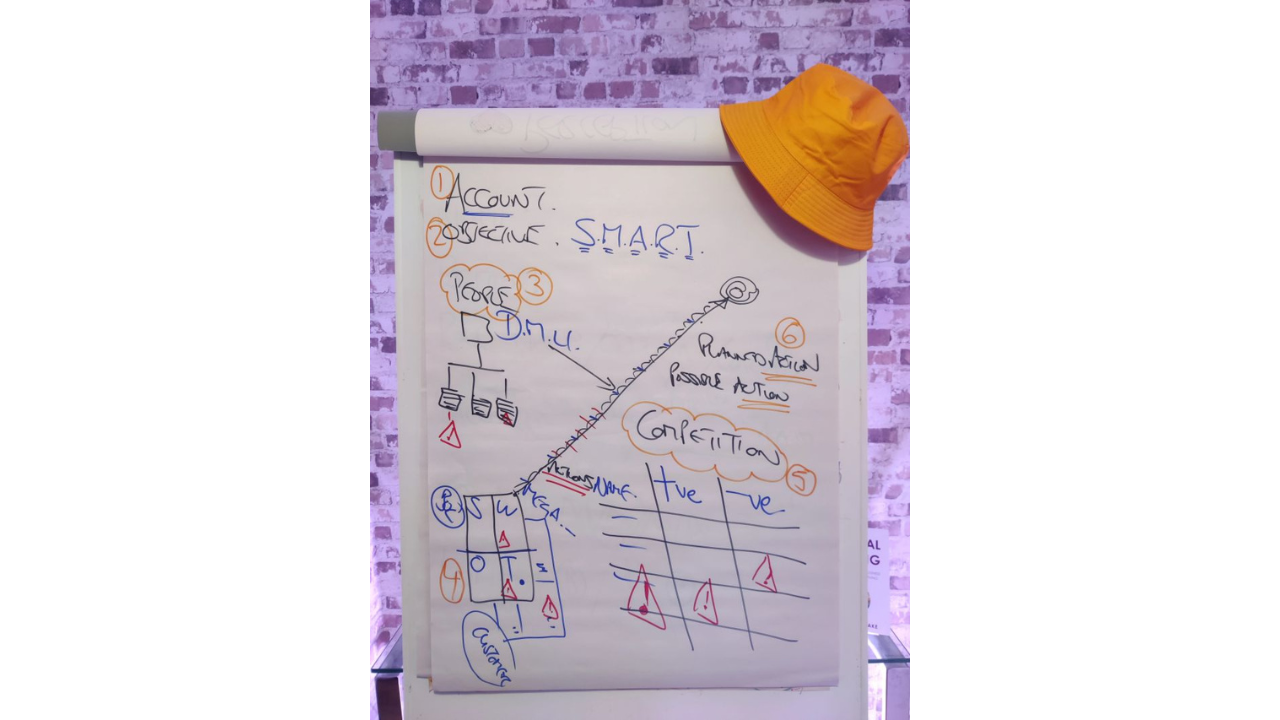 ① ACCOUNT.
② OBJECTIVE. S.M.A.R.T.
PEOPLE ③
D.M.U.
⑥
PLANNED ACTION
POSSIBLE ACTION
COMPETITION
⑤
ACTIONS
NAME. +ve -ve
S W
O T
④
CUSTOMERS
AL
G